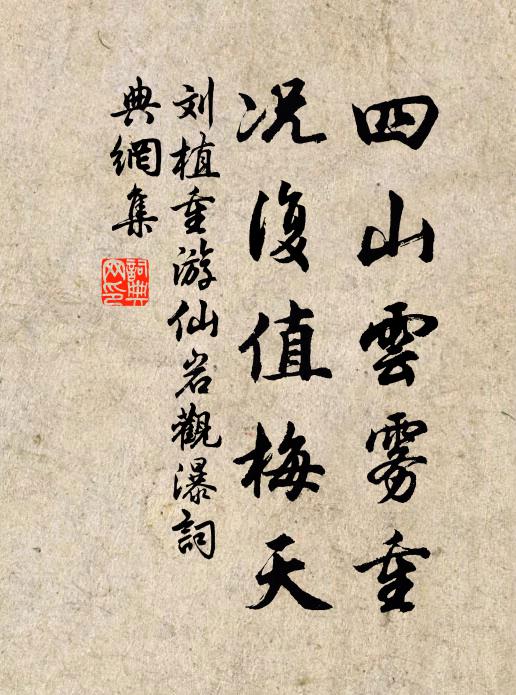 四山雲雾重
况復值梅天
刘植重游仙岩觀瀑詞
典網集
詞典网印